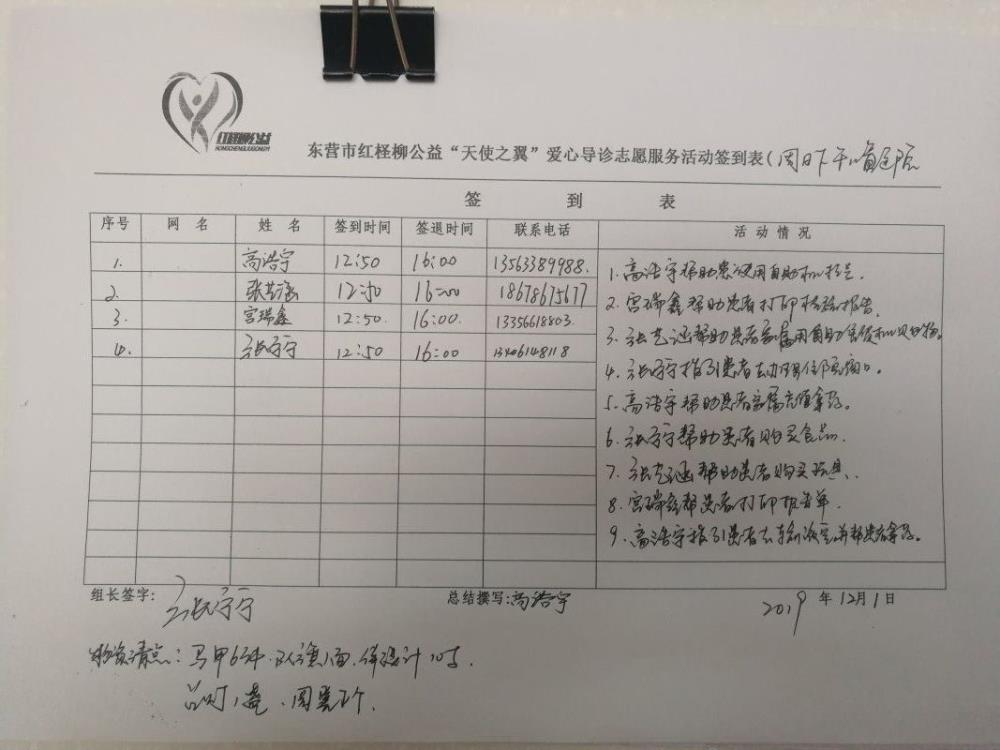 红柽柳公益
HONGCHENGLIUGONGYI
东营市红柽柳公益“天使之翼”爱心导诊志愿服务活动签到表(周日下午
签 到 表
序号 网 名 姓 名 签到时间 签退时间 联系电话 活动情况
1. 高浩宇 12:50 16:00 13563389988.
2. 12:50 16:00 18678675677
3. 宫瑞鑫 12:50. 16:00. 13356618803.
4. 张宁宁 12:50 16:00 13406148118
1.高浩宇帮助患者使用自助机挂号.
2.宫瑞鑫帮助患者打印检验报告.
3.张艺涵帮助患者家属用自助售货机购物.
4.张宁宁指引患者去办理住院窗口.
5.高浩宇帮助患者家属充值拿药.
6.张宁宁帮助患者购买食品.
7.张艺涵帮助患者购买玩具.
8.宫瑞鑫帮患者打印报告单.
9.高浩宇指引患者去输液室并帮患者拿药.
组长签字: 张宁宁 总结撰写:高浩宇 2019年12月1日
物资清点:马甲6件.队旗1面.体温计10支.
台灯1盏.